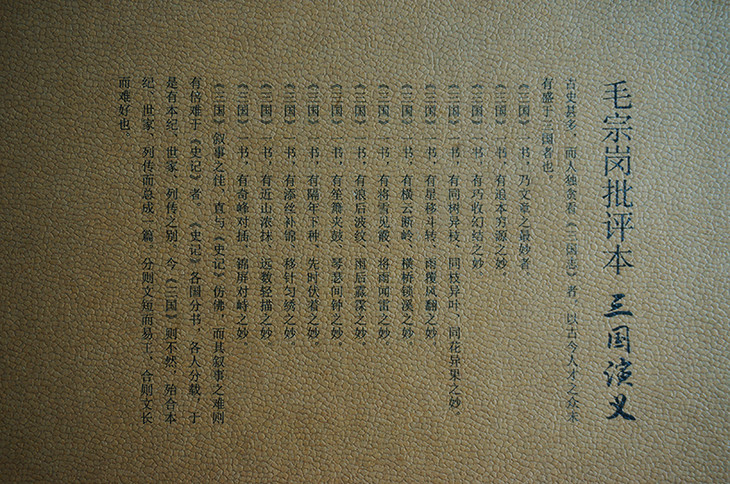 毛宗岗批评本 三国演义
古史甚多，而人独贪看《三国志》者，以古今人才之众未
有盛于三国者也。
《三国》一书，乃文章之最妙者。
《三国》一书，有追本穷源之妙。
《三国》一书，有巧收幻结之妙。
《三国》一书，有同树异枝、同枝异叶、同花异果之妙。
《三国》一书，有星移斗转、雨覆风翻之妙。
《三国》一书，有横云断岭、横桥锁溪之妙。
《三国》一书，有将雪见霰、将雨闻雷之妙。
《三国》一书，有浪后波纹、雨后霡霂之妙。
《三国》一书，有笙箫夹鼓、琴瑟间钟之妙。
《三国》一书，有隔年下种、先时伏着之妙。
《三国》一书，有添丝补锦、移针匀绣之妙。
《三国》一书，有近山浓抹、远数轻描之妙。
《三国》一书，有奇峰对插、锦屏对峙之妙。
《三国》叙事之佳，直与《史记》仿佛，而其叙事之难则
有倍难于《史记》者。《史记》各国分书，各人分载，于
是有本纪、世家、列传之别。今《三国》则不然，殆合本
纪、世家、列传而总成一篇。分则文短而易工，合则文长
而难好也。